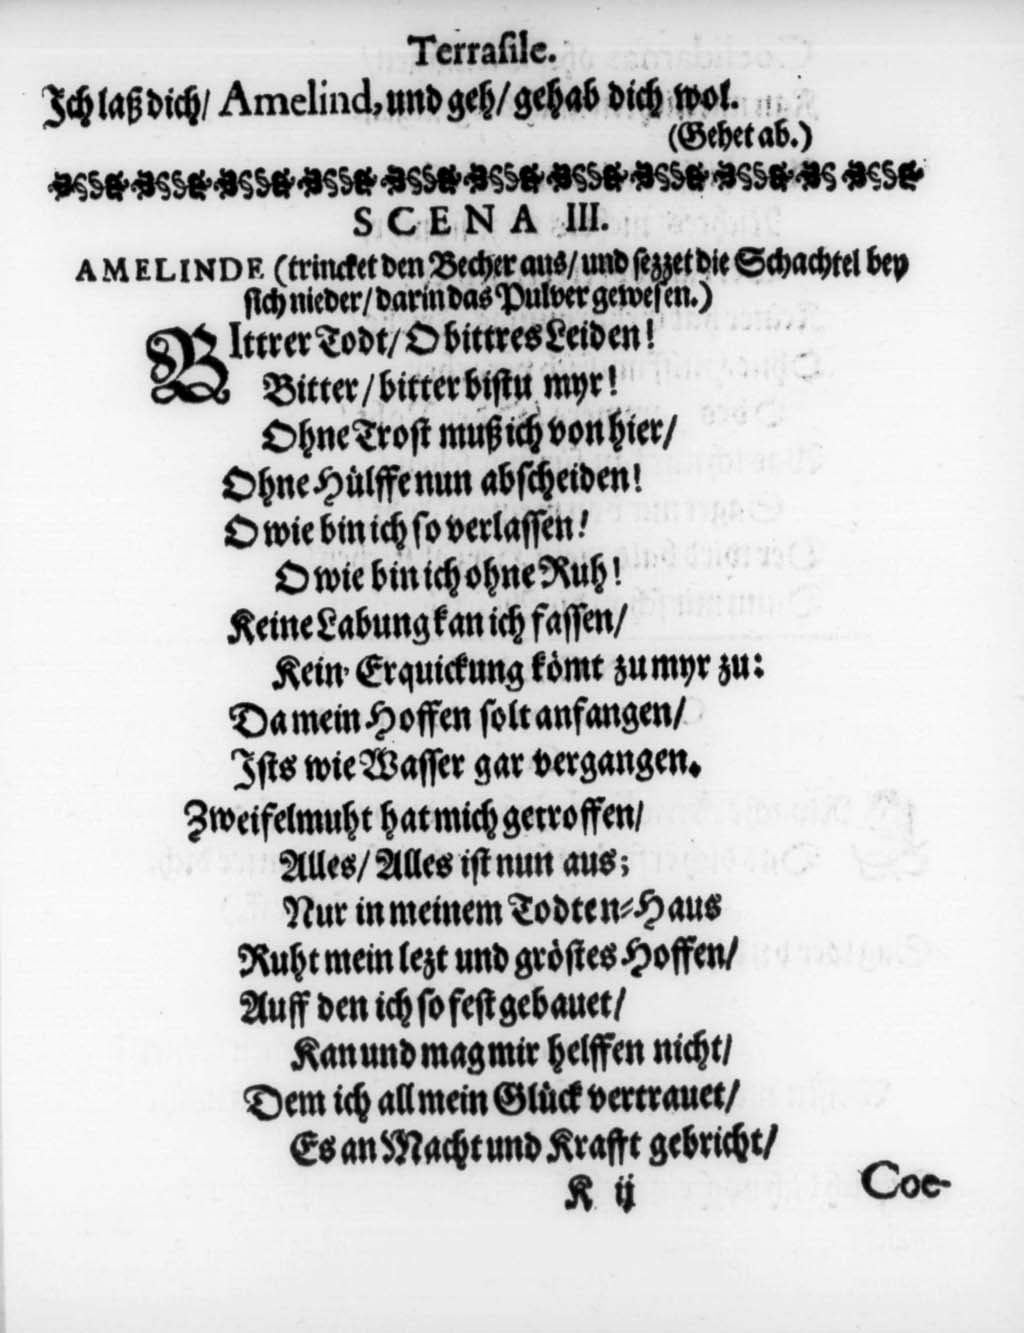 Terraſile.
Ich laß dich/ Amelind, und geh/ gehab dich wol.
(Gehet ab.)
SCENA III.
AMELINDE (trincket den Becher aus/ und ſezzet die Schachtel bey
ſich nieder/ darin das Pulver geweſen.)
BIttrer Todt/ O bittres Leiden!
Bitter/ bitter biſtu myr!
Ohne Troſt muß ich von hier/
Ohne Hülffe nun abſcheiden!
O wie bin ich ſo verlaſſen!
O wie bin ich ohne Ruh!
Keine Labung kan ich faſſen/
Kein' Erquickung kömt zu myr zu:
Da mein Hoffen ſolt anfangen/
Iſts wie Waſſer gar vergangen.
Zweifelmuht hat mich getroffen/
Alles/ Alles iſt nun aus;
Nur in meinem Todten-Haus
Ruht mein lezt und gröſtes Hoffen/
Auff den ich ſo feſt gebauet/
Kan und mag mir helffen nicht/
Dem ich all mein Glück vertrauet/
Es an Macht und Krafft gebricht/
K ij
Coe-